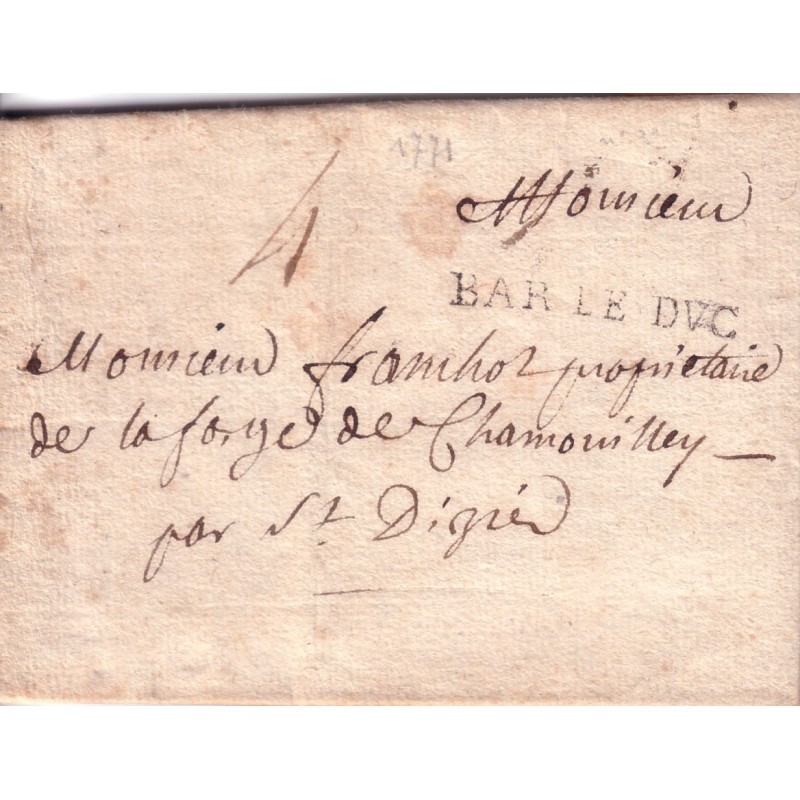 1771
4
Monsieur
BAR LE DVC
Monsieur franchot proprietaire
de la forge de Chamouilley
par St Dizier